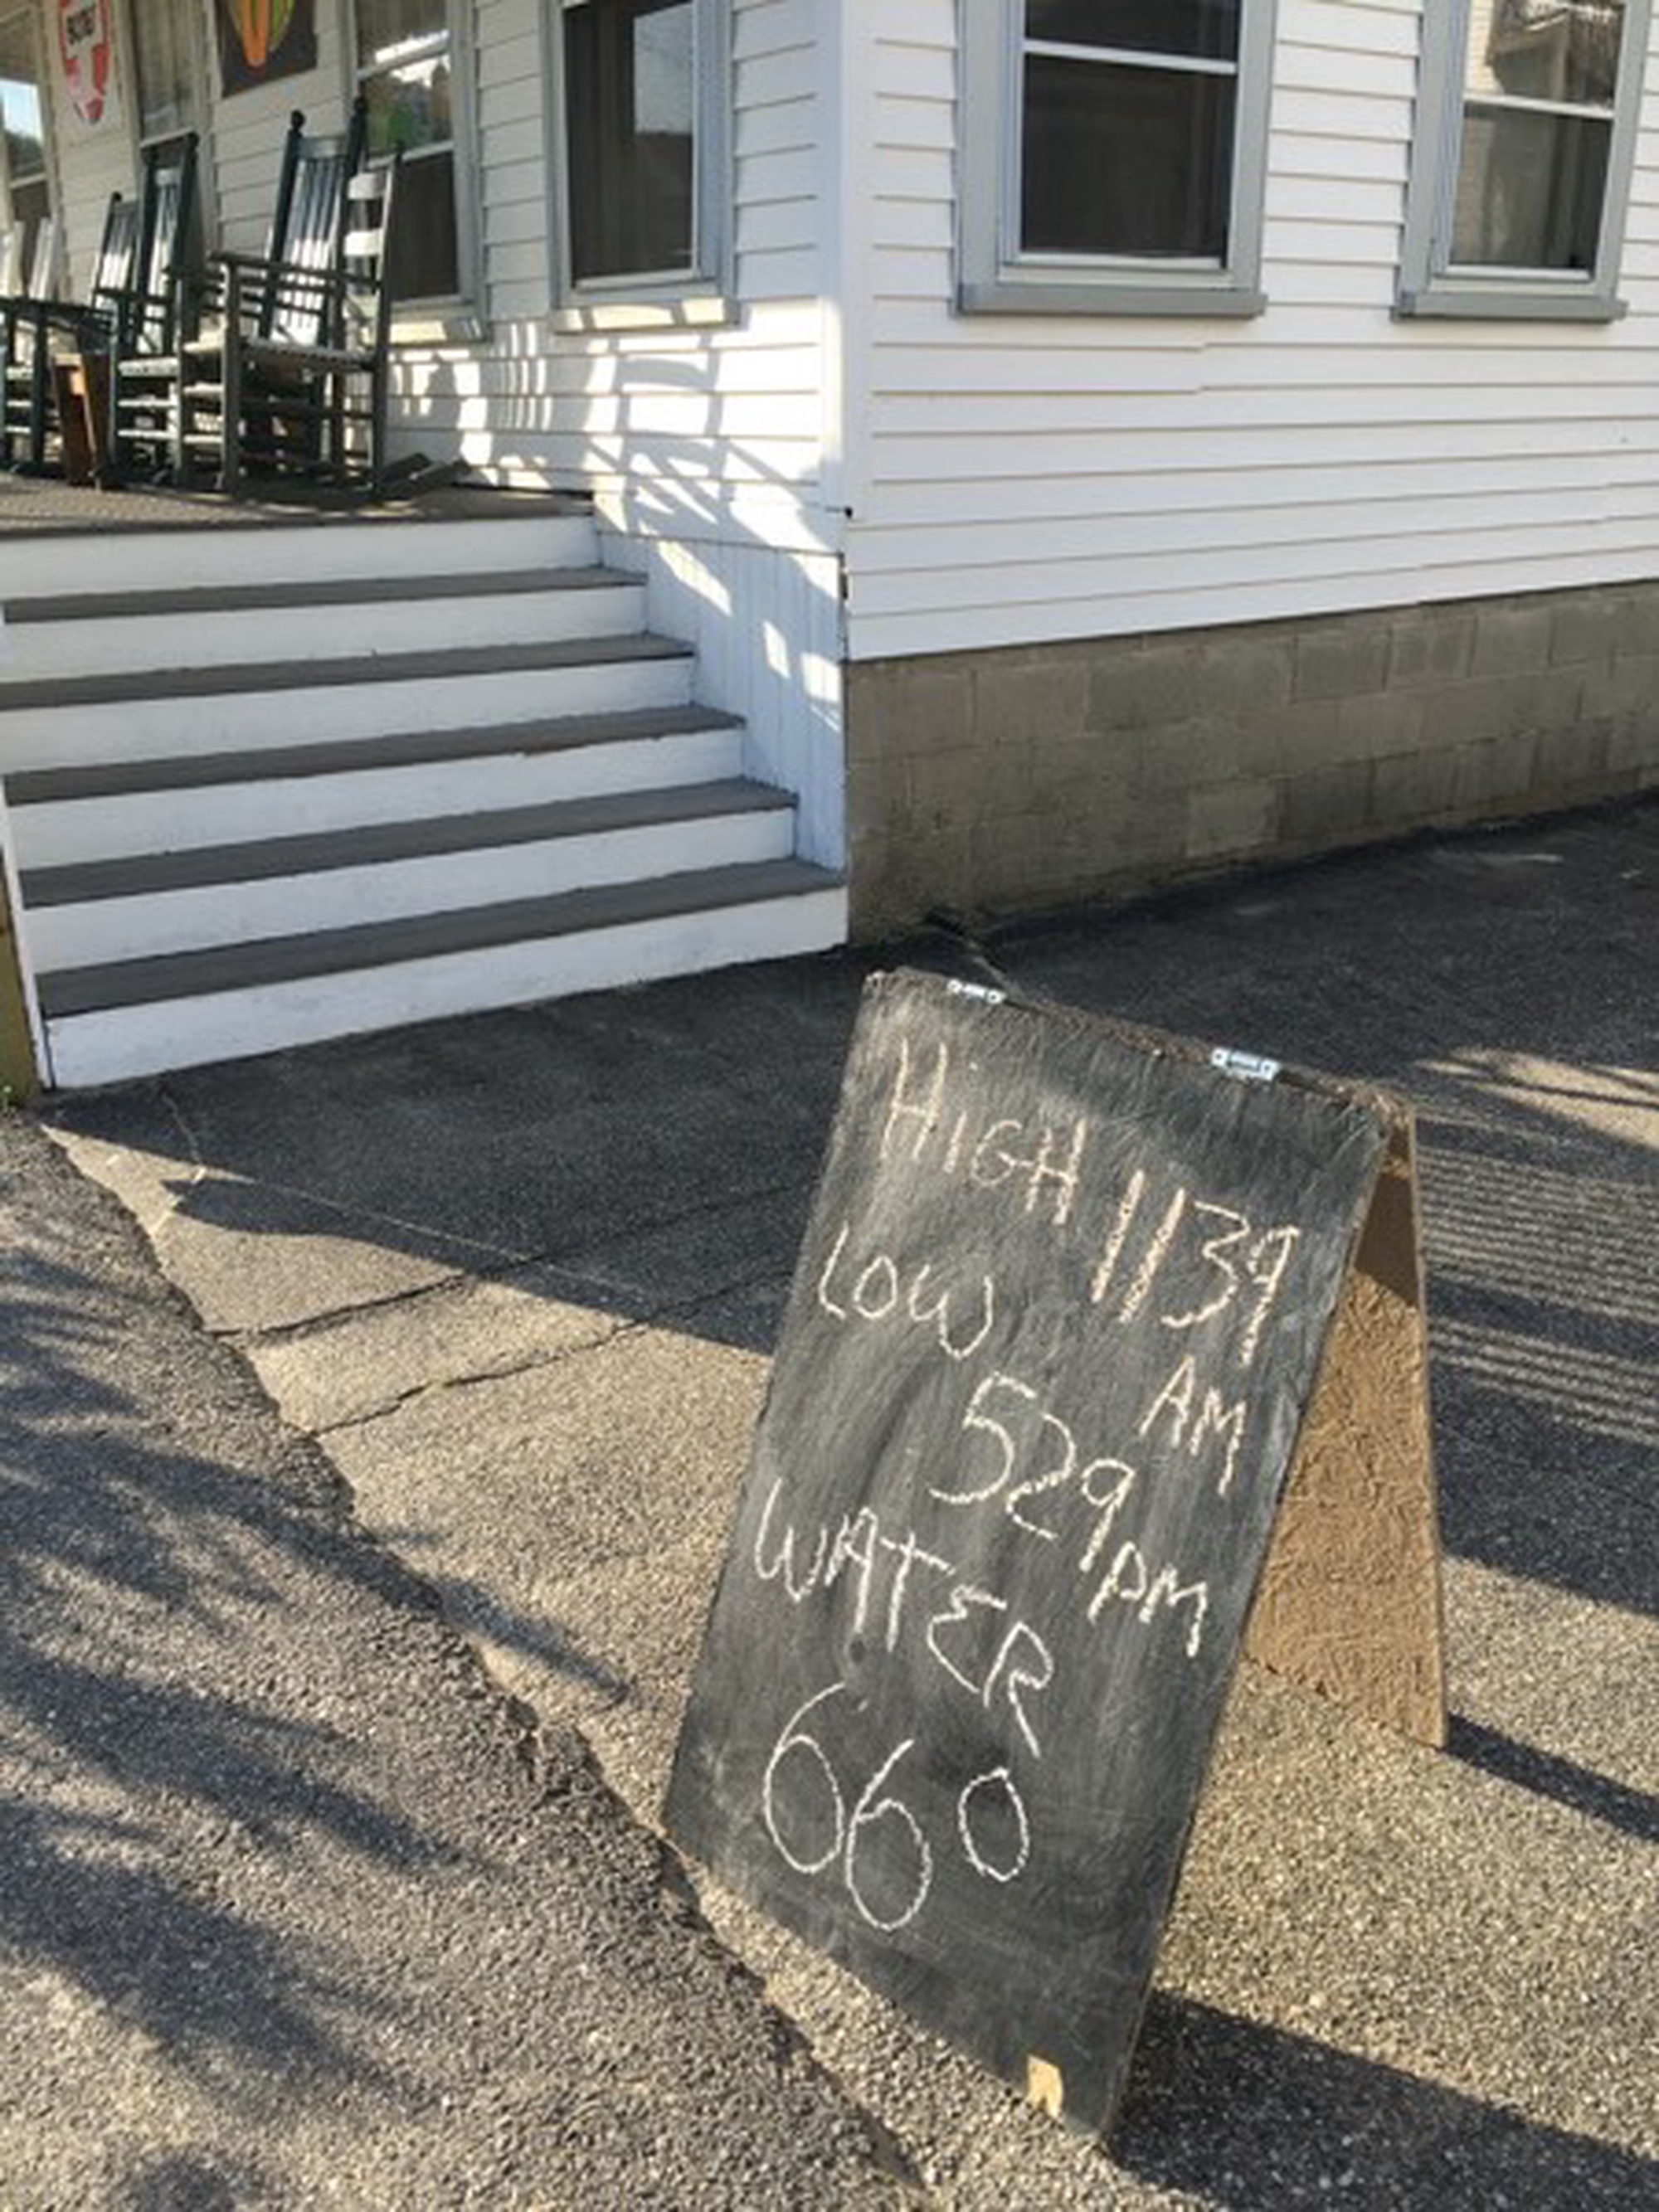 HiGH 1139
AM
LOW
529PM
WATER
660